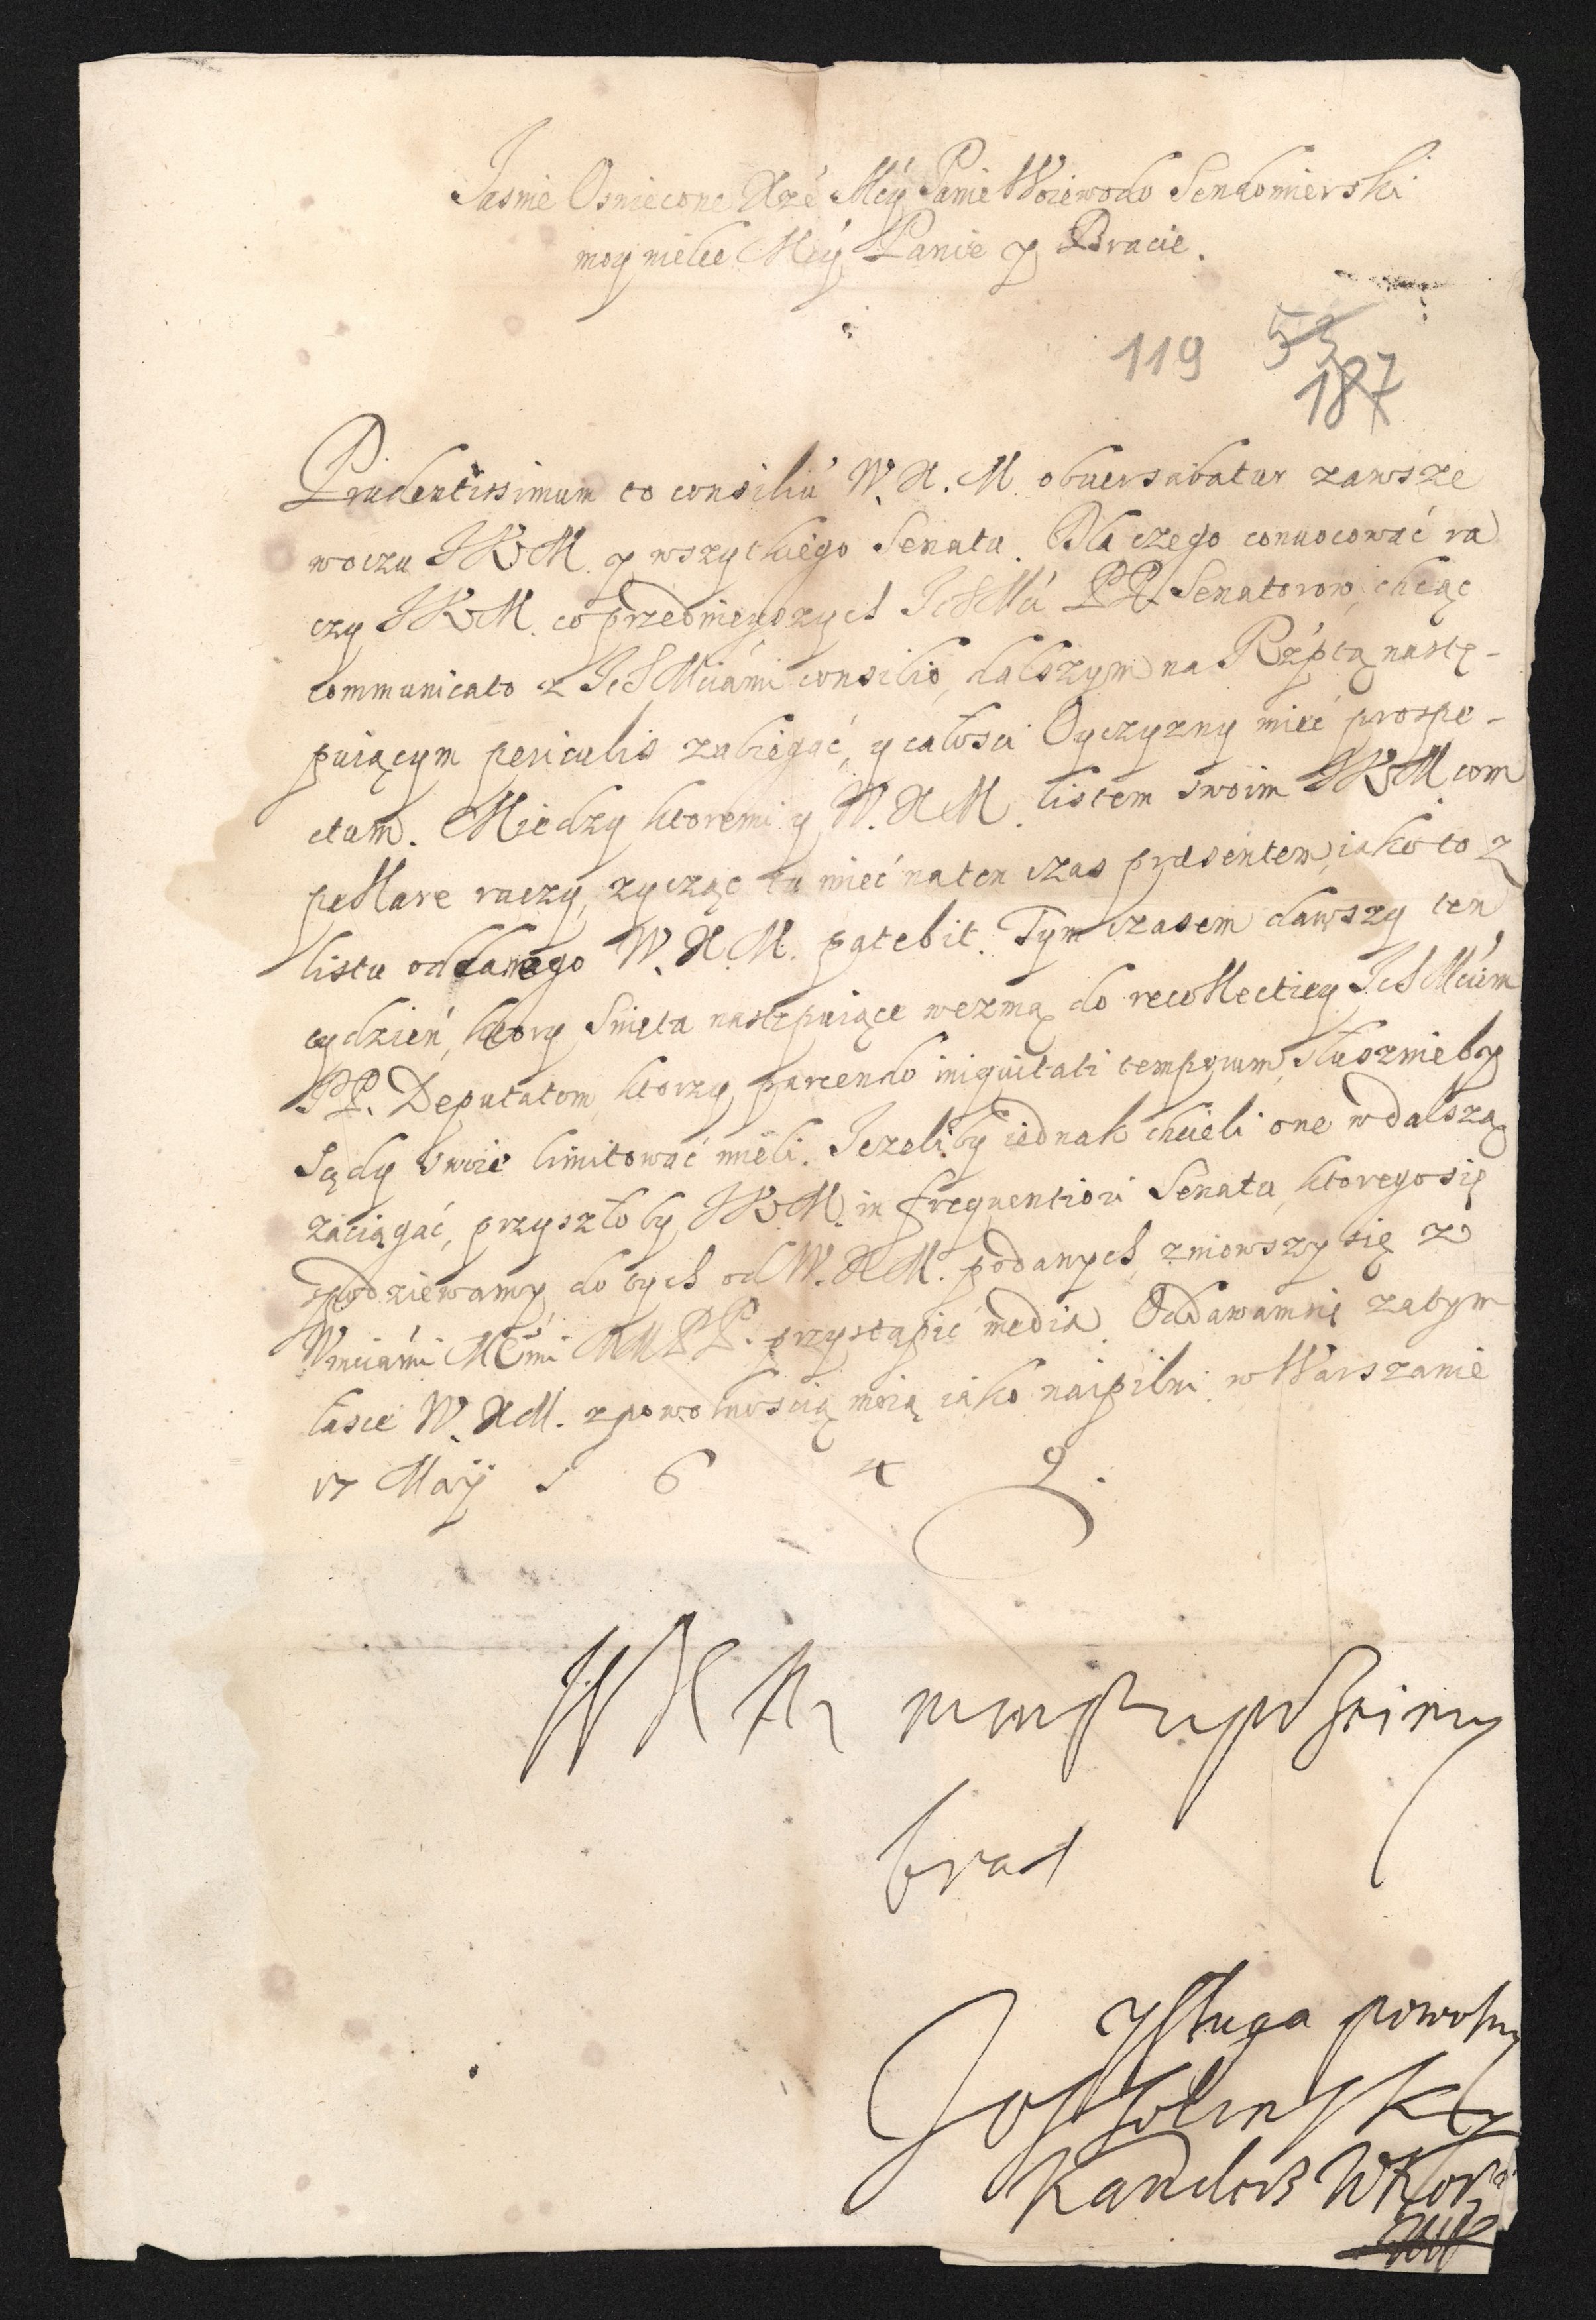 Jasnie Oswiecone Xżé Mćy Panie Woiewodo Sendomierski
moy wielce Mćy Panie y Bracie.
119 53
187
Prudentissimum to consiliū W. X. M. obuersabatur zawsze
woczu JKM. y wszytkiego Senatu. Dla czego conuocować ra
czy JKM. co przednieyszych IchMći PP. Senatorow, chcąc
communicato z IchMciámi consilio, dalszym na Rzptą nastę-
puiącym periculis zabiegać, y całosci Oyczyzny mieć prospe-
ctum. Miedzy ktoremi y W. X M. listem swoim JKM com
pellare raczy, zycząc tu mieć naten czas præsentem, iako to z
listu oddanego W. X. M. patebit. Tym czasem dawszy ten
tydzień, ktory Swięta następuiące wezmą do recollectiey IchMciom
PP. Deputatom, ktorzy parcendo iniquitati temporum, słusznie by
Sądy swoie limitować mieli. Iezeliby iednak chcieli one wdalszą
zaciągać, przyszło by JKM. in frequentiori Senatu, ktorego się
spodziewamy, do tych od W. X M. podanych zniowszy się z
Wmciámi Mćmi MM PP. przystąpić media. Oddawam się zatym
łasce W. XM. z powolnoscią moią iako naipilniey w Warszawie
17 Maÿ 1 6 4 9.
W X M
brat
y sługa powolny
Ossolinsky
Kanclerz WKor